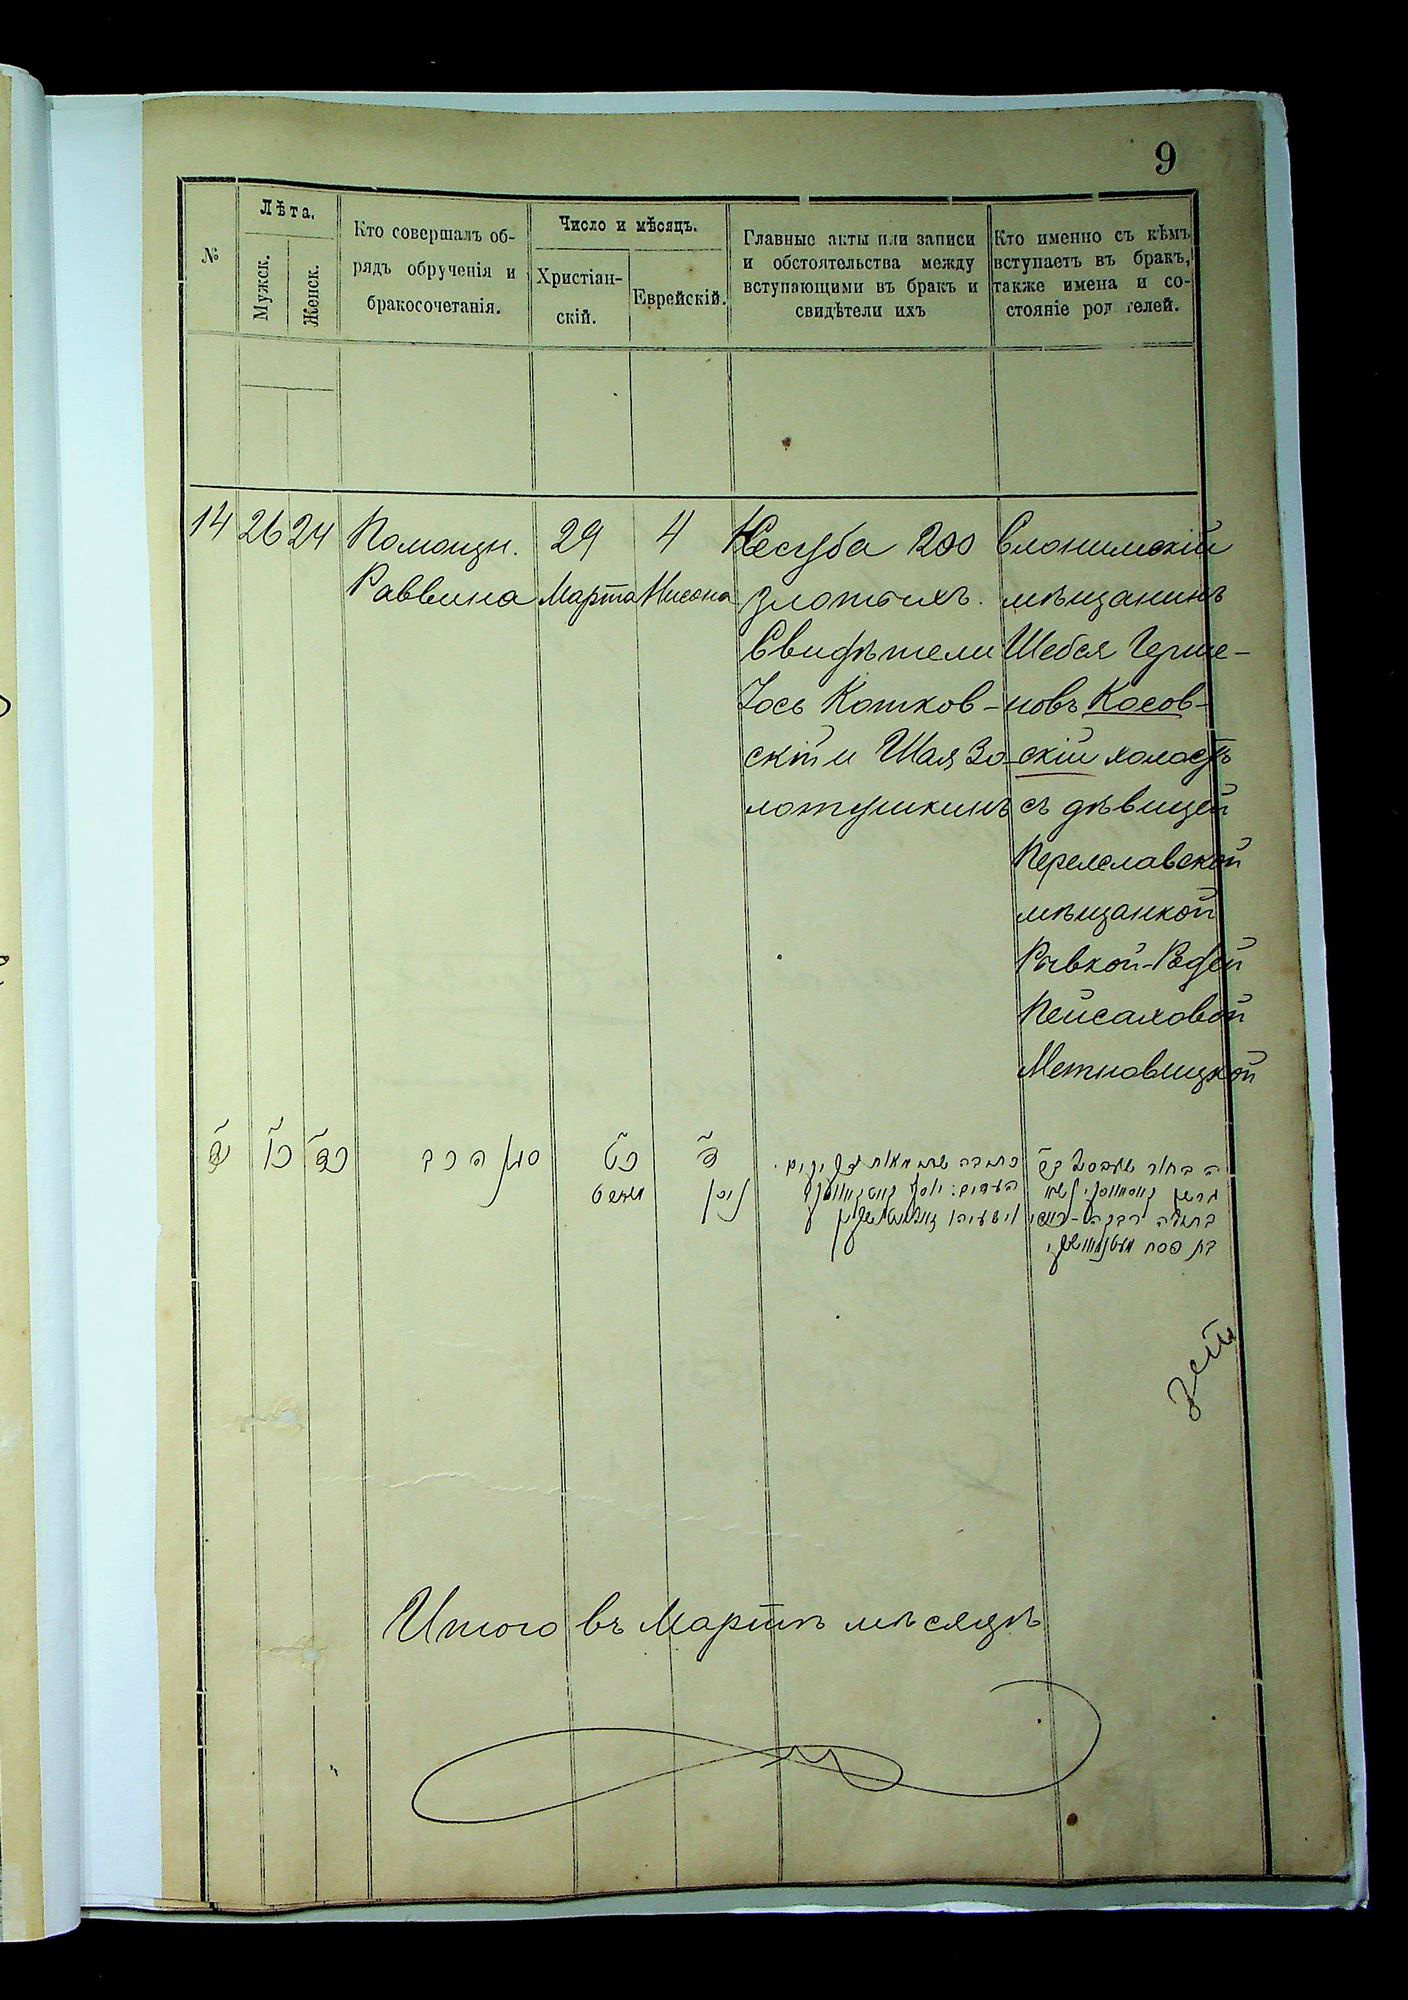 9
№
Лѣта.
Мужск.
Женск.
Кто совершалъ об-
рядъ обрученія и
бракосочетанія.
Число и мѣсяцъ.
Христіан-
скій.
Еврейскій.
Главные акты или записи
и обстоятельства между
вступающими въ бракъ и
свидѣтели ихъ
Кто именно съ кѣмъ
вступаетъ въ бракъ,
также имена и со-
стояніе род телей.
14
26
24
Помощн.
Раввина
29
Марта
4
Нисона
Кесуба 200
злотыхъ.
Свидѣтели
Іось Котков-
скій и Шая Зо-
лотушкинъ
Слонимскій
мѣщанинъ
Шебся Герше-
новъ Косов-
скій холостъ
съ дѣвицей
Переяславской
мѣщанкой
Рывкой-Родей
Пейсаховой
Метновицкой
כו
כד
סגן הרב
כט
מארט
ד
ניסן
כתובה מאות
העדים: יוסף
וישעיהו
ה בחור שעבסל
גרשון
בתולה רבקה
בת פסח
Итого въ Мартѣ мѣсяцѣ